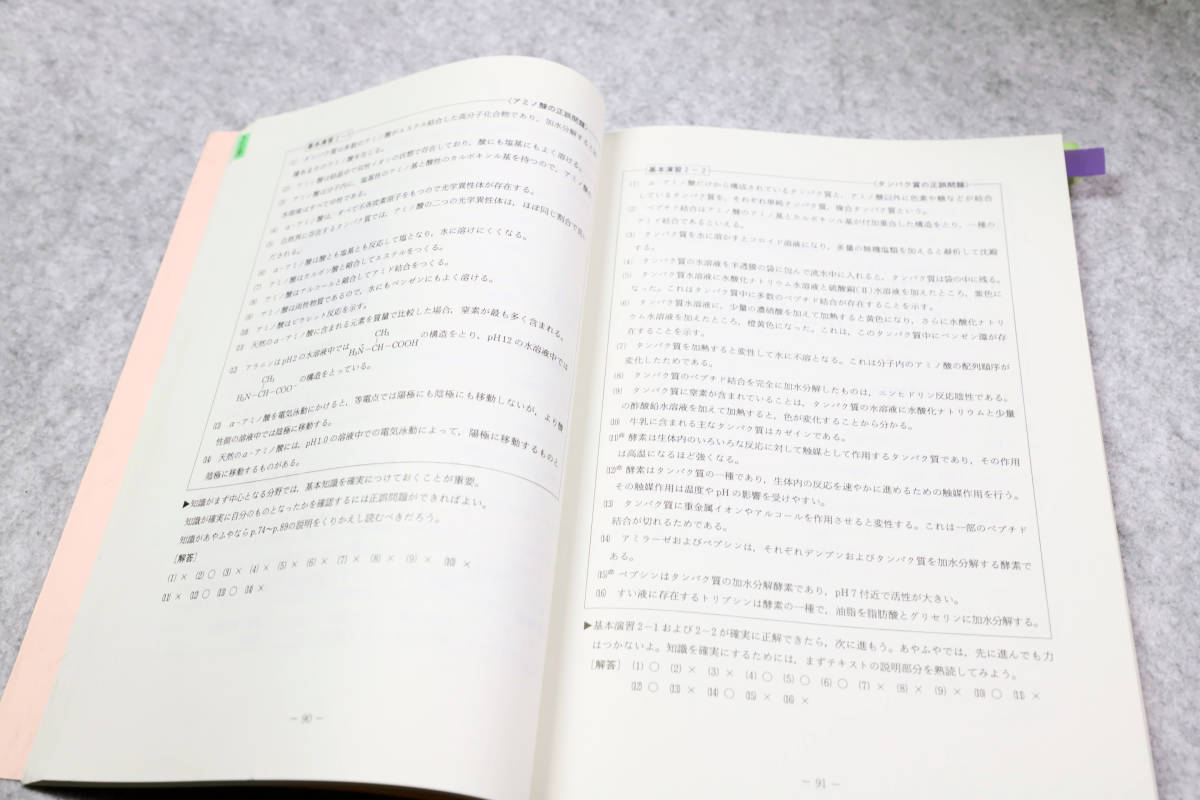 基本演習2-1
〈アミノ酸の正誤問題〉
(1) タンパク質は多数のアミノ酸がエステル結合した高分子化合物であり、加水分解すると
種々のアミノ酸を生じる。
(2) アミノ酸は結晶中で双性イオンの状態で存在しており、酸にも塩基にもよく溶ける。
(3) アミノ酸は分子内に、塩基性のアミノ基と酸性のカルボキシル基を持つので、アミノ酸の
水溶液はすべて中性である。
(4) α-アミノ酸は、すべて不斉炭素原子をもつので光学異性体が存在する。
(5) 自然界に存在するタンパク質では、アミノ酸の二つの光学異性体は、ほぼ同じ割合で
だされる。
(6) α-アミノ酸は酸とも塩基とも反応して塩となり、水に溶けにくくなる。
(7) アミノ酸はカルボン酸と縮合してエステルをつくる。
(8) アミノ酸はアルコールと縮合してアミド結合をつくる。
(9) アミノ酸は両性物質であるので、水にもベンゼンにもよく溶ける。
(10) アミノ酸はビウレット反応を示す。
(11) 天然のα-アミノ酸に含まれる元素を質量で比較した場合、窒素が最も多く含まれる。
CH₃
(12) アラニンはpH2の水溶液中では H₃N⁺-CH-COOH の構造をとり、pH12の水溶液中では
CH₃
H₂N-CH-COO⁻ の構造をとっている。
(13) α-アミノ酸を電気泳動にかけると、等電点では陽極にも陰極にも移動しないが、より酸
性側の溶液中では陰極に移動する。
(14) 天然のα-アミノ酸には、pH1.0の溶液中での電気泳動によって、陽極に移動するものと
陰極に移動するものがある。
▶知識がまず中心となる分野では、基本知識を確実につけておくことが重要。
知識が確実に自分のものとなったかを確認するには正誤問題ができればよい。
知識があやふやならp.74〜p.89の説明をくりかえし読むべきだろう。
[解答]
(1) × (2) ○ (3) × (4) × (5) × (6) × (7) × (8) × (9) × (10) ×
(11) × (12) ○ (13) ○ (14) ×
- 90 -
基本演習2-2
〈タンパク質の正誤問題〉
(1) α-アミノ酸だけから構成されているタンパク質と、アミノ酸以外に色素や糖などが結合
しているタンパク質を、それぞれ単純タンパク質、複合タンパク質という。
(2) ペプチド結合はアミノ酸のアミノ基とカルボキシル基が付加重合した構造をとり、一種の
アミド結合であるといえる。
(3) タンパク質を水に溶かすとコロイド溶液になり、多量の無機塩類を加えると凝析して沈殿
する。
(4) タンパク質の水溶液を半透膜の袋に包んで流水中に入れると、タンパク質は袋の中に残る。
(5) タンパク質水溶液に水酸化ナトリウム水溶液と硫酸銅(II)水溶液を加えたところ、紫色に
なった。これはタンパク質中に多数のペプチド結合が存在することを示す。
(6) タンパク質水溶液に、少量の濃硝酸を加えて加熱すると黄色になり、さらに水酸化ナトリ
ウム水溶液を加えたところ、橙黄色になった。これは、このタンパク質中にベンゼン環が存
在することを示す。
(7) タンパク質を加熱すると変性して水に不溶となる。これは分子内のアミノ酸の配列順序が
変化したためである。
(8) タンパク質のペプチド結合を完全に加水分解したものは、ニンヒドリン反応陰性である。
(9) タンパク質に窒素が含まれていることは、タンパク質の水溶液に水酸化ナトリウムと少量
の酢酸鉛水溶液を加えて加熱すると、色が変化することから分かる。
(10) 牛乳に含まれる主なタンパク質はカゼインである。
(11) 酵素は生体内のいろいろな反応に対して触媒として作用するタンパク質であり、その作用
は高温になるほど強くなる。
(12) 酵素はタンパク質の一種であり、生体内の反応を速やかに進めるための触媒作用を行う。
その触媒作用は温度やpHの影響を受けやすい。
(13) タンパク質に重金属イオンやアルコールを作用させると変性する。これは一部のペプチド
結合が切れるためである。
(14) アミラーゼおよびペプシンは、それぞれデンプンおよびタンパク質を加水分解する酵素で
ある。
(15) ペプシンはタンパク質の加水分解酵素であり、pH7付近で活性が大きい。
(16) すい液に存在するトリプシンは酵素の一種で、油脂を脂肪酸とグリセリンに加水分解する。
▶基本演習2-1および2-2が確実に正解できたら、次に進もう。あやふやでは、先に進んでも力
はつかないよ。知識を確実にするためには、まずテキストの説明部分を熟読してみよう。
[解答] (1) ○ (2) × (3) × (4) ○ (5) ○ (6) ○ (7) × (8) × (9) × (10) ○ (11) ×
(12) ○ (13) × (14) ○ (15) × (16) ×
- 91 -